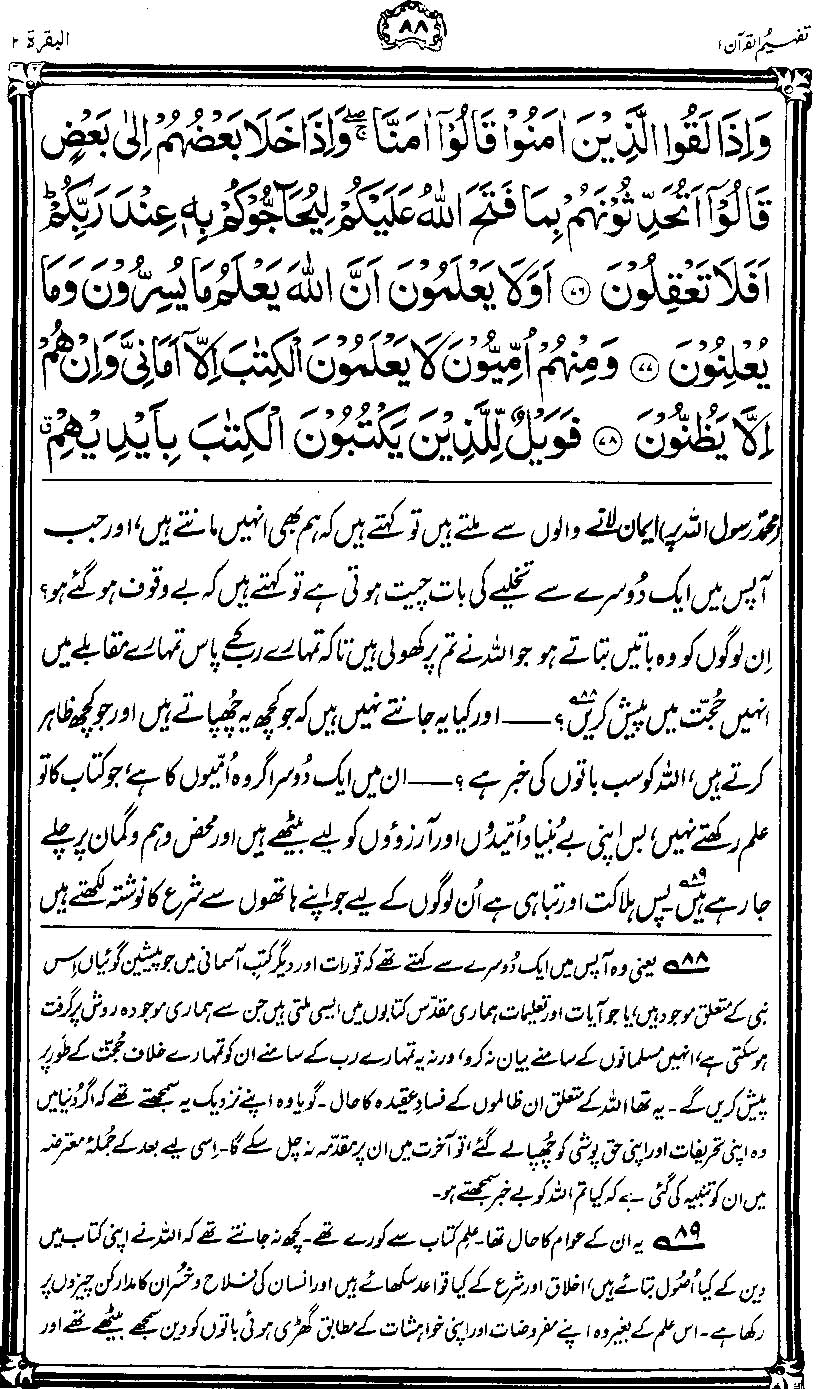 تفہیم القرآن ۱
۸۸
البقرۃ ۲
وَاِذَا لَقُوا الَّذِيْنَ اٰمَنُوْا قَالُوْٓا اٰمَنَّا ۚۖ وَاِذَا خَلَا بَعْضُهُمْ اِلٰى بَعْضٍ
قَالُوْٓا اَتُحَدِّثُوْنَهُمْ بِمَا فَتَحَ اللّٰهُ عَلَيْكُمْ لِيُحَآجُّوْكُمْ بِهٖ عِنْدَ رَبِّكُمْ ؕ
اَفَلَا تَعْقِلُوْنَ ﴿۷۶﴾ اَوَلَا يَعْلَمُوْنَ اَنَّ اللّٰهَ يَعْلَمُ مَا يُسِرُّوْنَ وَمَا
يُعْلِنُوْنَ ﴿۷۷﴾ وَمِنْهُمْ اُمِّيُّوْنَ لَا يَعْلَمُوْنَ الْكِتٰبَ اِلَّآ اَمَانِيَّ وَاِنْ هُمْ
اِلَّا يَظُنُّوْنَ ﴿۷۸﴾ فَوَيْلٌ لِّلَّذِيْنَ يَكْتُبُوْنَ الْكِتٰبَ بِاَيْدِيْهِمْ ۗ
(محمدؐ رسول اللہ پر) ایمان لانے والوں سے ملتے ہیں تو کہتے ہیں کہ ہم بھی انہیں مانتے ہیں، اور جب
آپس میں ایک دُوسرے سے تخلیے کی بات چیت ہوتی ہے تو کہتے ہیں کہ بے وقوف ہو گئے ہو؟
اِن لوگوں کو وہ باتیں بتاتے ہو جو اللہ نے تم پر کھولی ہیں تاکہ تمہارے رب کے پاس تمہارے مقابلے میں
انہیں حُجّت میں پیش کریں؟۸۸ ــــ اور کیا یہ جانتے نہیں ہیں کہ جو کچھ یہ چُھپاتے ہیں اور جو کچھ ظاہر
کرتے ہیں، اللہ کو سب باتوں کی خبر ہے؟ ــــ ان میں ایک دُوسرا گروہ اُمّیوں کا ہے، جو کتاب کا تو
علم رکھتے نہیں، بس اپنی بے بُنیاد اُمّیدوں اور آرزوؤں کو لیے بیٹھے ہیں اور محض وہم و گمان پر چلے
جا رہے ہیں۸۹۔ پس ہلاکت اور تباہی ہے اُن لوگوں کے لیے جو اپنے ہاتھوں سے شرع کا نوشتہ لکھتے ہیں
۸۸ یعنی وہ آپس میں ایک دُوسرے سے کہتے تھے کہ تورات اور دیگر کتبِ آسمانی میں جو پیشین گوئیاں اِس
نبی کے متعلق موجود ہیں، یا جو آیات اور تعلیمات ہماری مقدّس کتابوں میں ایسی ملتی ہیں جن سے ہماری موجودہ روش پر گرفت
ہو سکتی ہے، انہیں مسلمانوں کے سامنے بیان نہ کرو، ورنہ یہ تمہارے رب کے سامنے ان کو تمہارے خلاف حُجّت کے طور پر
پیش کریں گے۔ یہ تھا اللہ کے متعلق ان ظالموں کے فسادِ عقیدہ کا حال۔ گویا وہ اپنے نزدیک یہ سمجھتے تھے کہ اگر دُنیا میں
وہ اپنی تحریفات اور اپنی حق پوشی کو چُھپا لے گئے، تو آخرت میں ان پر مقدّمہ نہ چل سکے گا۔ اِسی لیے بعد کے جُملۂ معترضہ
میں ان کو تنبیہ کی گئی ہے کہ کیا تم اللہ کو بے خبر سمجھتے ہو۔
۸۹ یہ ان کے عوام کا حال تھا۔ علمِ کتاب سے کورے تھے۔ کچھ نہ جانتے تھے کہ اللہ نے اپنی کتاب میں
دین کے کیا اُصُول بتائے ہیں، اخلاق اور شرع کے کیا قواعد سکھائے ہیں اور انسان کی فلاح و خُسران کا مدار کن چیزوں پر
رکھا ہے۔ اس علم کے بغیر وہ اپنے مفروضات اور اپنی خواہشات کے مطابق گھڑی ہوئی باتوں کو دین سمجھے بیٹھے تھے اور